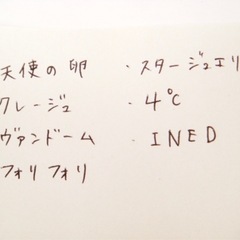 天使の卵
クレージュ
ヴァンドーム
フォリフォリ
・スタージュエリ
・4℃
・INED